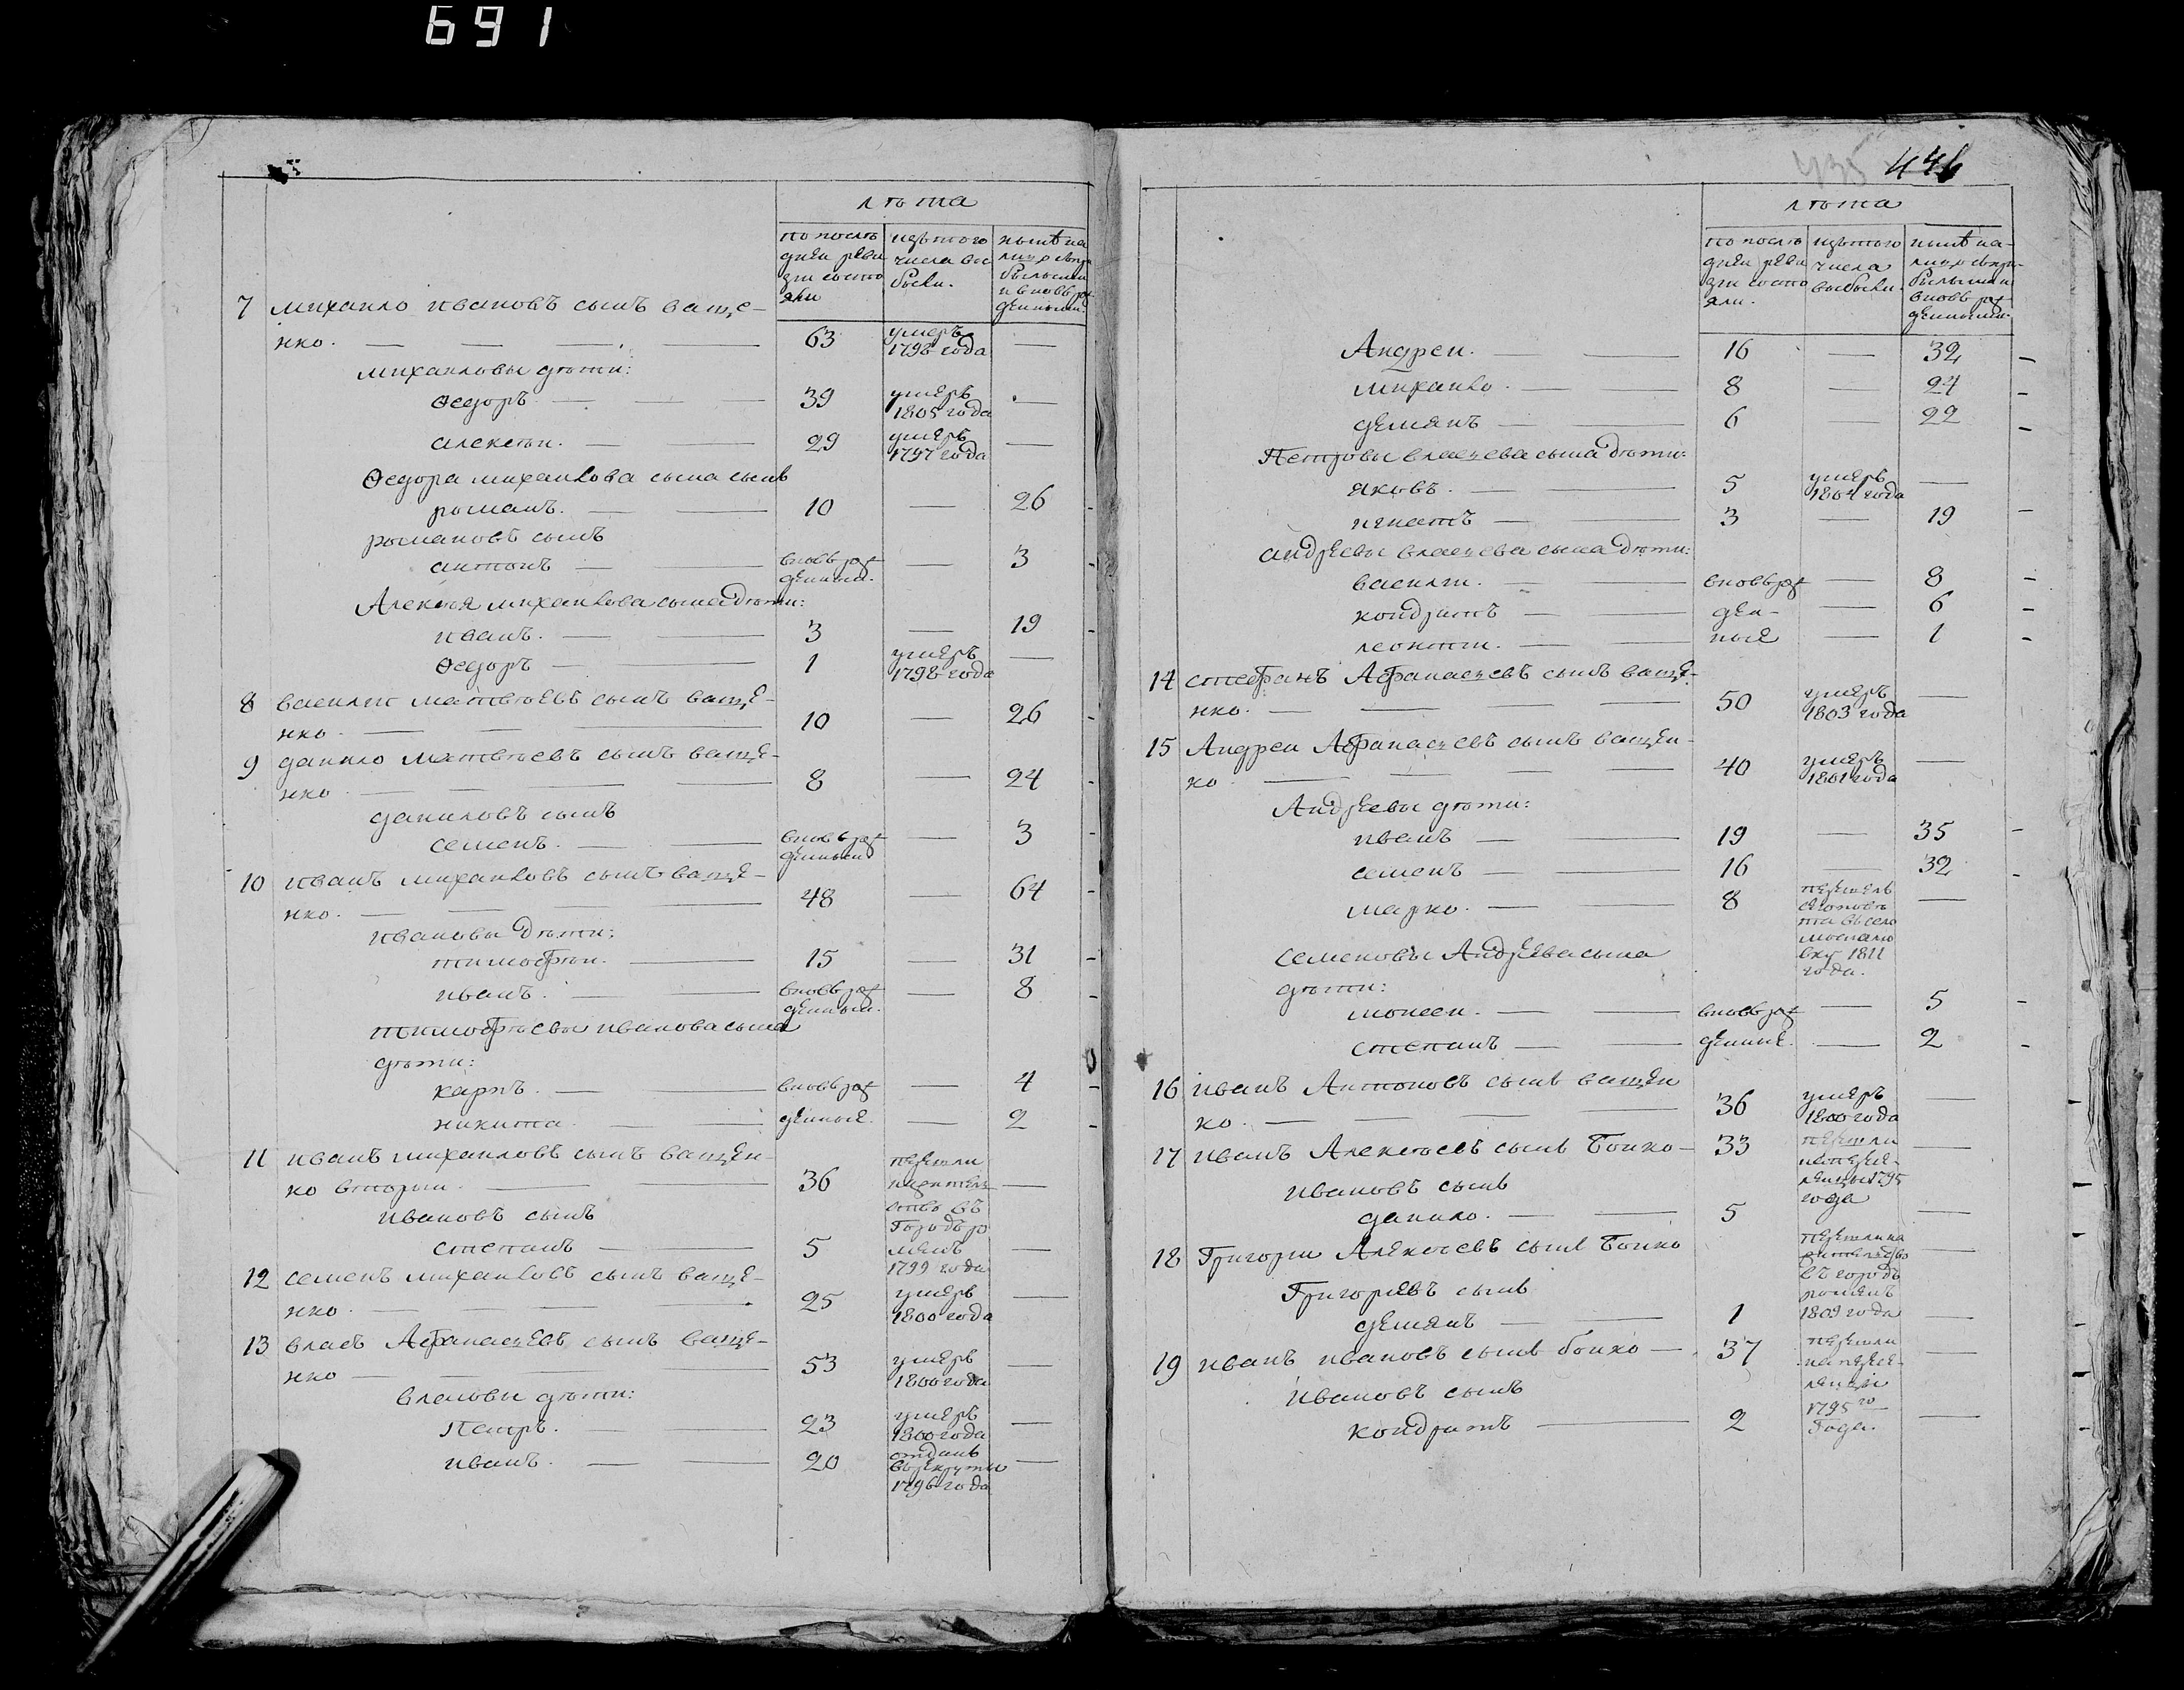 691
лѣта
по послѣ
дней реви
зіи состо
яли
изъ того
числа вы
были.
нынѣ на
лицо съ при
былыми
и вновь рож
денными.
7 михаило ивановъ сынъ ваще-
нко. 63 умеръ
1798 года
михаиловы дѣти:
ѳедоръ 39 умеръ
1805 года
алексѣи. 29 умеръ
1797 года
Ѳедора михаилова сына сынъ
романъ. 10 26
романовъ сынъ
антонъ вновь рож
денныи. 3
Алексѣя михаилова сына дѣти:
иванъ. 3 19
ѳедоръ 1 умеръ
1798 года
8 василіи матвѣевъ сынъ ваще-
нко. 10 26
9 данило матвѣевъ сынъ ваще-
нко 8 24
даниловъ сынъ
семенъ. вновь рож
денныи 3
10 иванъ михаиловъ сынъ ваще-
нко. 48 64
ивановы дѣти:
тимофѣи. 15 31
иванъ. вновь рож
денныи. 8
тимофѣевы иванова сына
дѣти:
карпъ. вновь рож 4
никита. денные. 2
11 иванъ михаиловъ сынъ ващен-
ко вторыи 36 перешли
на жител
ство въ
Городъ ро
менъ
1799 года
Ивановъ сынъ
степанъ 5
12 семенъ михаиловъ сынъ ваще-
нко. 25 умеръ
1800 года
13 власъ Афанасиевъ сынъ ваще-
нко 53 умеръ
1800 года
власовы дѣти:
Петръ. 23 умеръ
1800 года
иванъ. 20 отданъ
в рекруты
1796 года
435 446
лѣта
по послѣ
дней реви
зіи состо
яли.
изъ того
числа
выбыли.
нынѣ на-
лицо съ при-
былыми
вновь рож
денными.
Андреи. 16 32
михаило. 8 24
демянъ 6 22
Петровы власиева сына дѣти:
яковъ. 5 умеръ
1804 года
игнатъ 3 19
андреевы власиева сына дѣти:
василіи. вновь рож 8
кондратъ ден- 6
леонтіи. ные 1
14 стефанъ Афанасиевъ сынъ ваще-
нко. 50 умеръ
1803 года
15 Андреи Афанасиевъ сынъ ващен-
ко 40 умеръ
1801 года
Андреевы дѣти:
иванъ 19 35
семенъ 16 32
марко. 8 перешелъ
въ село
1811
года.
семеновы Андреева сына
дѣти:
моисеи. вновь рож 5
степанъ денные. 2
16 иванъ Антоновъ сынъ ващен
ко. 36 умеръ
1800 года
17 иванъ Алексѣевъ сынъ Боико- 33 перешли
на посе-
1795
года
ивановъ сынъ
данило. 5
18 Григории Алексѣевъ сынъ Боико перешли на
жителство
въ городъ
роменъ
1809 года
Григориевъ сынъ
демянъ 1
19 иванъ ивановъ сынъ боико 37 перешли
1795го
Года.
Ивановъ сынъ
кондратъ 2